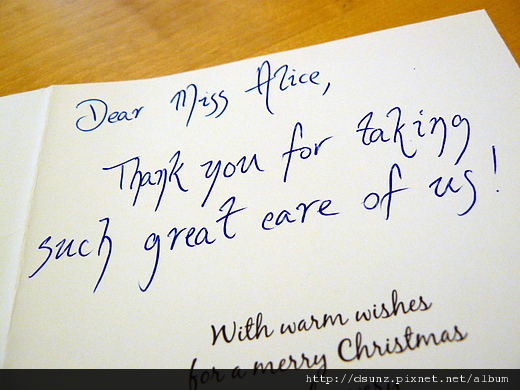 Dear Miss Alice,
Thank you for taking
such great care of us!
With warm wishes
for a merry Christmas
http://dsunz.pixnet.net/album